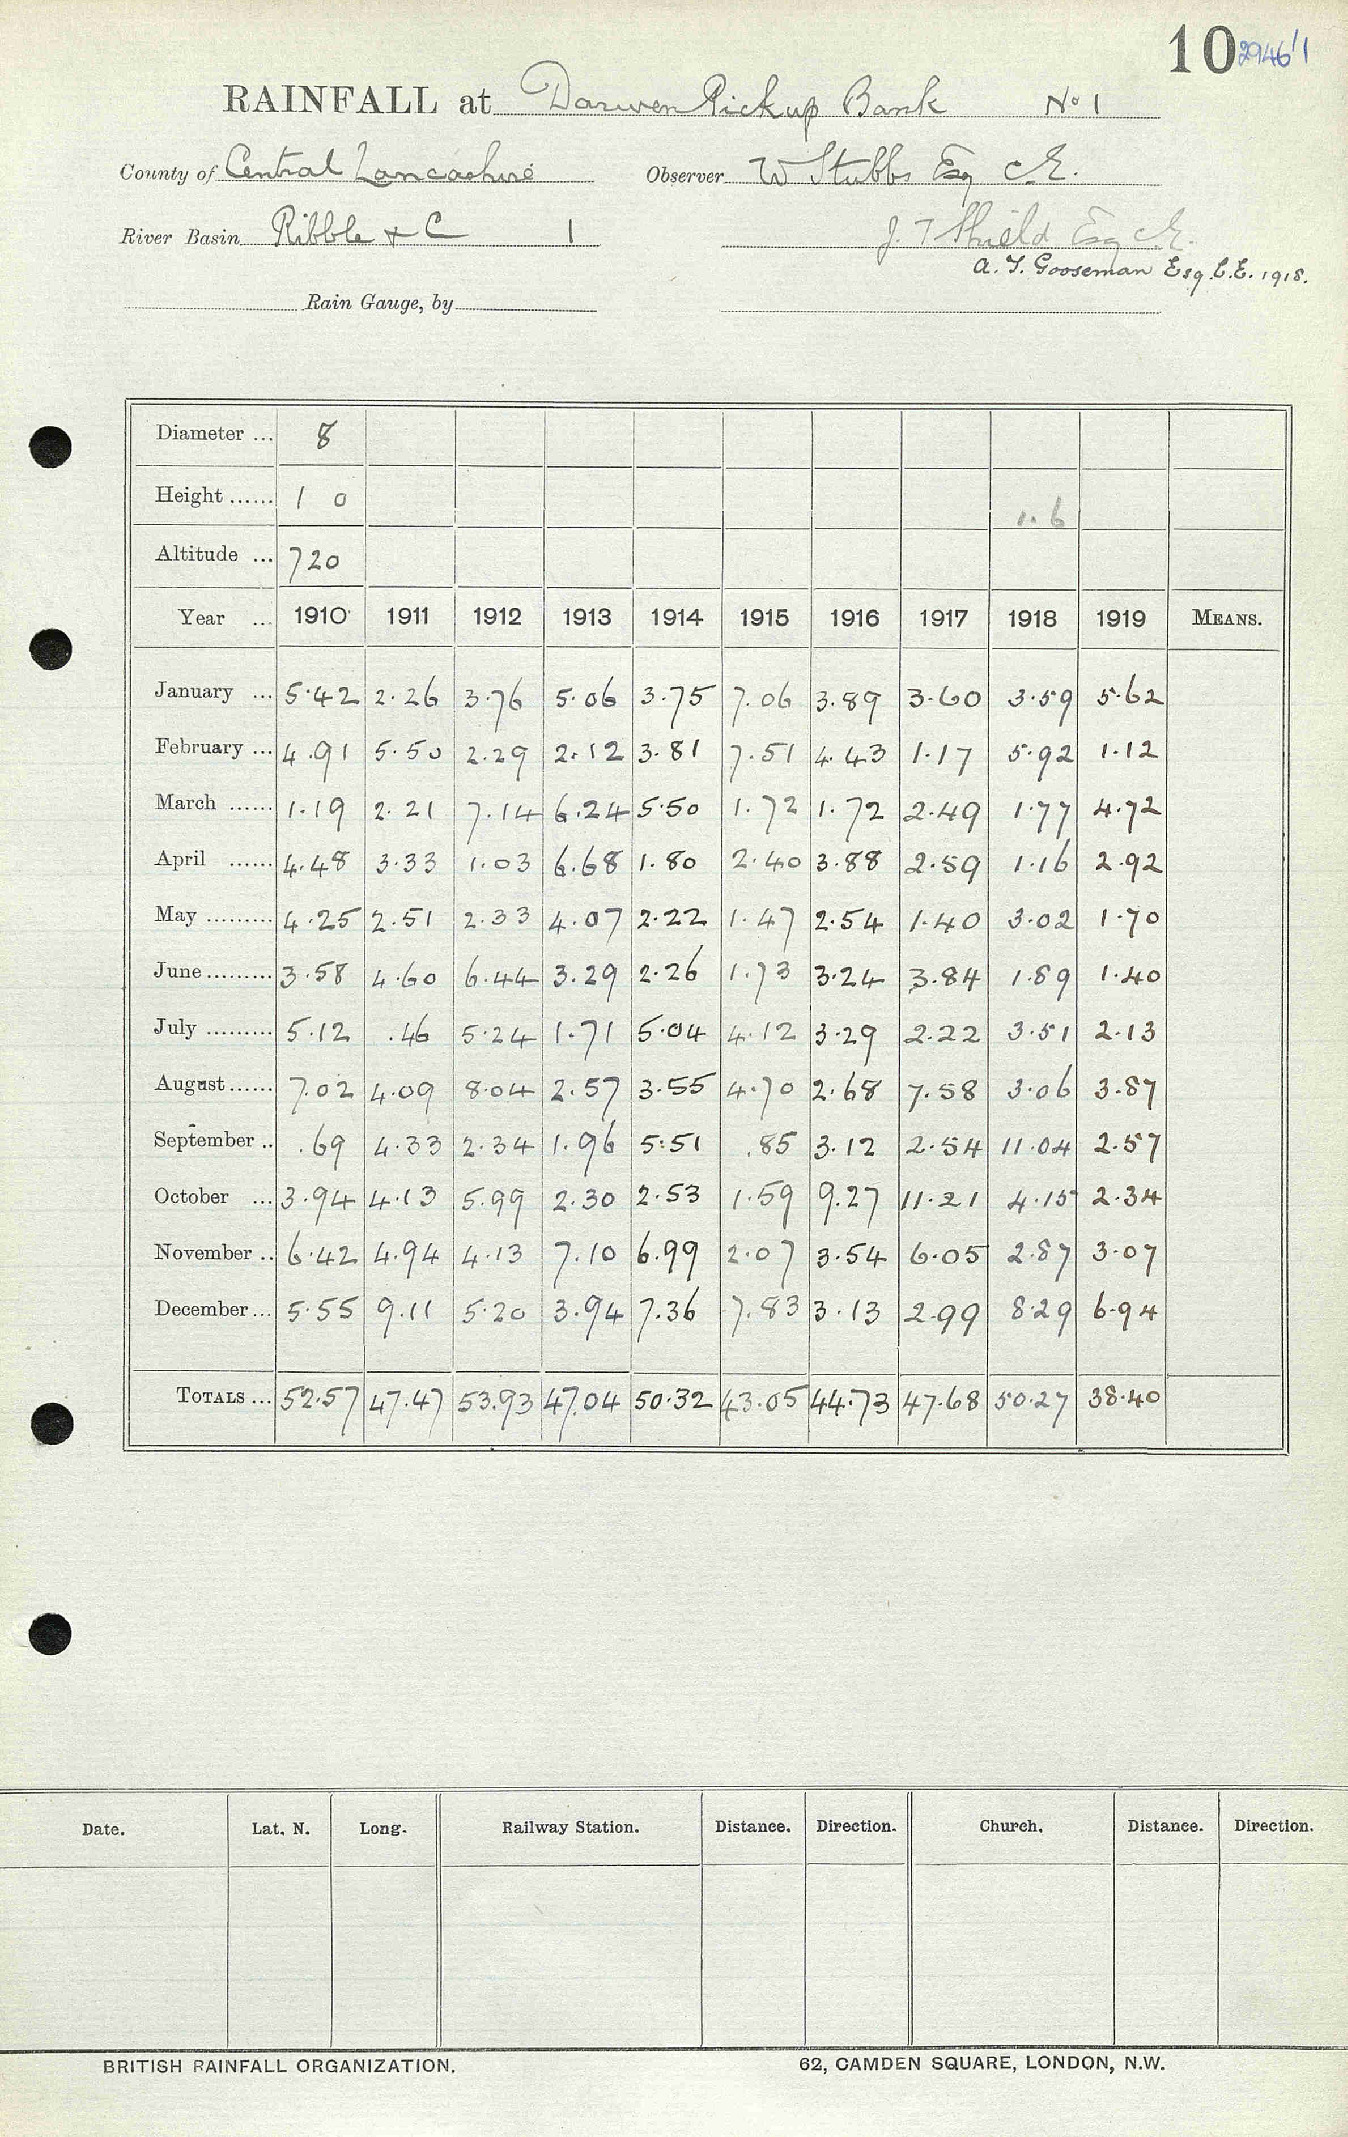 10 2946/1
RAINFALL at Darwen Pickup Bank No 1
County of Central Lancashire Observer W Stubbs Esq C.E.
River Basin Ribble & C 1 J. T Shield Esq C.E.
A. T. Gooseman Esq. C.E. 1918.
Rain Gauge, by
Diameter ... 8
Height ...... 1 0 1.6
Altitude ... 720
Year ... 1910 1911 1912 1913 1914 1915 1916 1917 1918 1919 MEANS.
January ... 5.42 2.26 3.76 5.06 3.75 7.06 3.89 3.60 3.59 5.62
February ... 4.91 5.50 2.29 2.12 3.81 7.51 4.43 1.17 5.92 1.12
March ...... 1.19 2.21 7.14 6.24 5.50 1.72 1.72 2.49 1.77 4.72
April ...... 4.48 3.33 1.03 6.68 1.80 2.40 3.88 2.59 1.16 2.92
May ......... 4.25 2.51 2.33 4.07 2.22 1.47 2.54 1.40 3.02 1.70
June ......... 3.58 4.60 6.44 3.29 2.26 1.73 3.24 3.84 1.89 1.40
July ......... 5.12 .46 5.24 1.71 5.04 4.12 3.29 2.22 3.51 2.13
August ...... 7.02 4.09 8.04 2.57 3.55 4.70 2.68 7.58 3.06 3.87
September .. .69 4.33 2.34 1.96 5.51 .85 3.12 2.54 11.04 2.57
October ... 3.94 4.13 5.99 2.30 2.53 1.59 9.27 11.21 4.15 2.34
November .. 6.42 4.94 4.13 7.10 6.99 2.07 3.54 6.05 2.87 3.07
December ... 5.55 9.11 5.20 3.94 7.36 7.83 3.13 2.99 8.29 6.94
TOTALS ... 52.57 47.47 53.93 47.04 50.32 43.05 44.73 47.68 50.27 38.40
Date. Lat. N. Long. Railway Station. Distance. Direction. Church. Distance. Direction.
BRITISH RAINFALL ORGANIZATION. 62, CAMDEN SQUARE, LONDON, N.W.